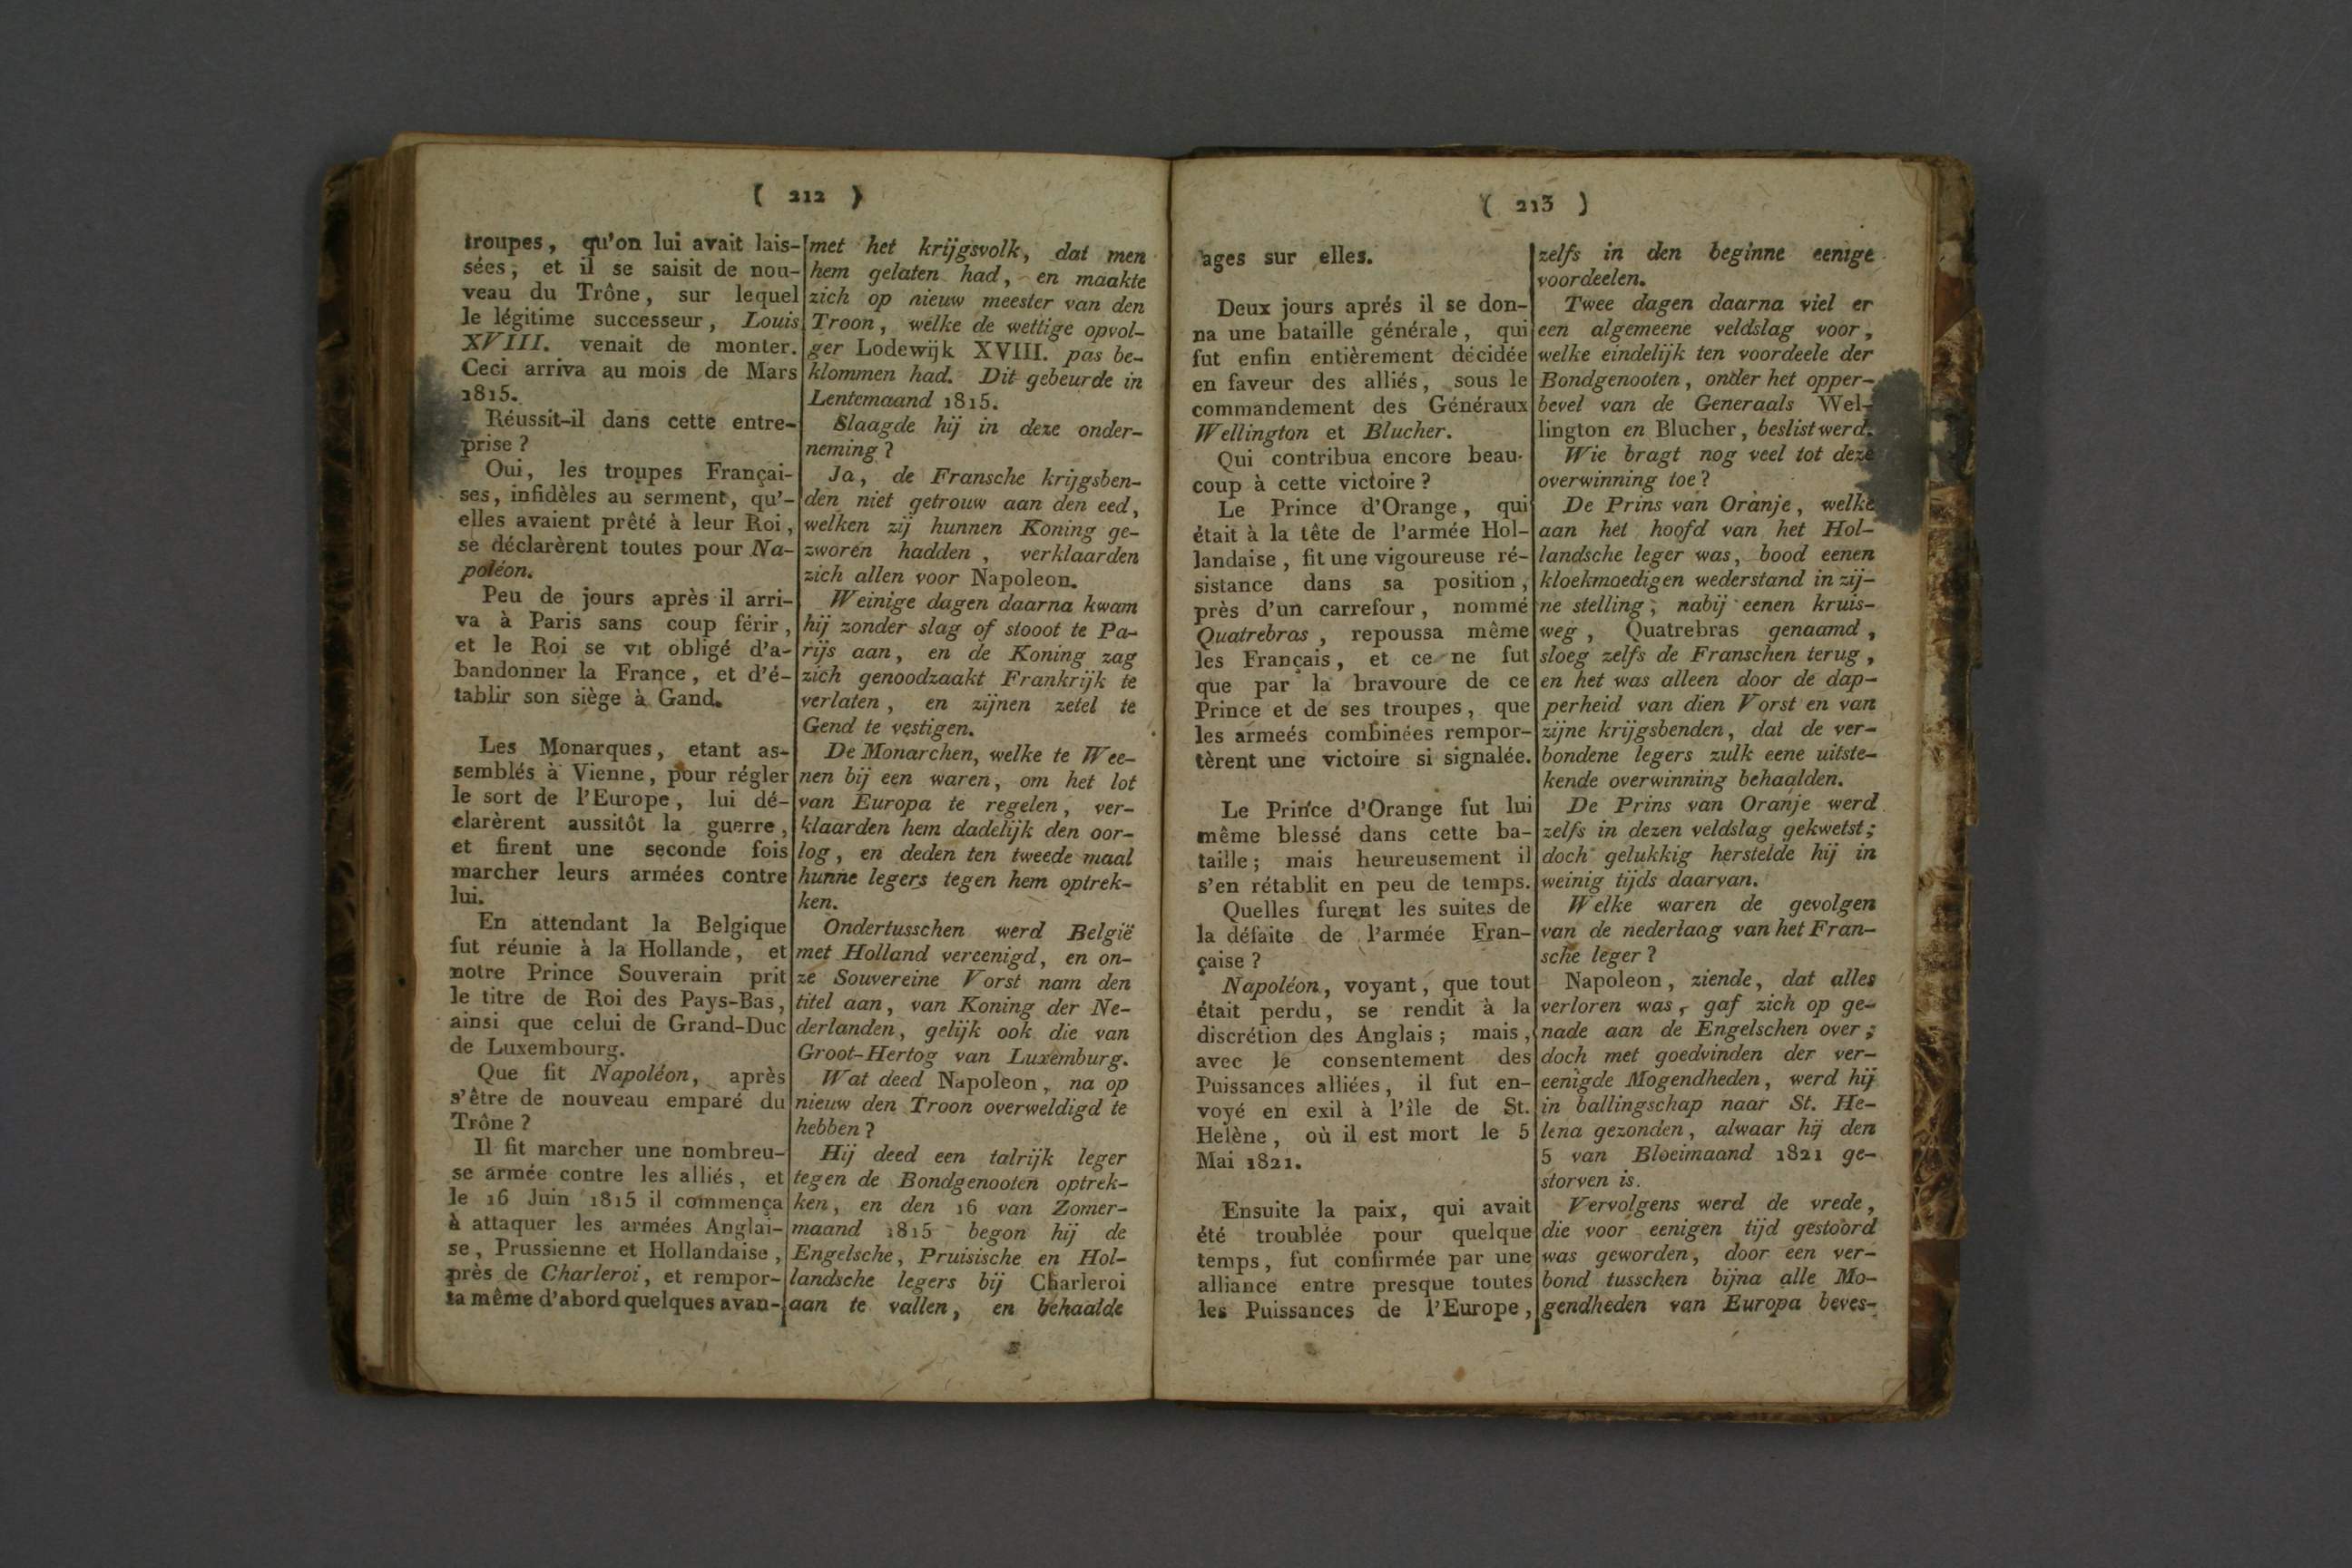 ( 212 )
troupes, qu'on lui avait lais-
sées; et il se saisit de nou-
veau du Trône, sur lequel
le légitime successeur, Louis
XVIII. venait de monter.
Ceci arriva au mois de Mars
1815.
Réussit-il dans cette entre-
prise ?
Oui, les troupes Françai-
ses, infidèles au serment, qu'-
elles avaient prêté à leur Roi,
se déclarèrent toutes pour Na-
poléon.
Peu de jours après il arri-
va à Paris sans coup férir,
et le Roi se vit obligé d'a-
bandonner la France, et d'é-
tablir son siège à Gand.
Les Monarques, etant as-
semblés à Vienne, pour régler
le sort de l'Europe, lui dé-
clarèrent aussitôt la guerre,
et firent une seconde fois
marcher leurs armées contre
lui.
En attendant la Belgique
fut réunie à la Hollande, et
notre Prince Souverain prit
le titre de Roi des Pays-Bas,
ainsi que celui de Grand-Duc
de Luxembourg.
Que fit Napoléon, après
s'être de nouveau emparé du
Trône ?
Il fit marcher une nombreu-
se armée contre les alliés, et
le 16 Juin 1815 il commença
à attaquer les armées Anglai-
se, Prussienne et Hollandaise,
près de Charleroi, et rempor-
ta même d'abord quelques avan-
met het krijgsvolk, dat men
hem gelaten had, en maakte
zich op nieuw meester van den
Troon, welke de wettige opvol-
ger Lodewijk XVIII. pas be-
klommen had. Dit gebeurde in
Lentemaand 1815.
Slaagde hij in deze onder-
neming ?
Ja, de Fransche krijgsben-
den niet getrouw aan den eed,
welken zij hunnen Koning ge-
zworen hadden, verklaarden
zich allen voor Napoleon.
Weinige dagen daarna kwam
hij zonder slag of stooot te Pa-
rijs aan, en de Koning zag
zich genoodzaakt Frankrijk te
verlaten, en zijnen zetel te
Gend te vestigen.
De Monarchen, welke te Wee-
nen bij een waren, om het lot
van Europa te regelen, ver-
klaarden hem dadelijk den oor-
log, en deden ten tweede maal
hunne legers tegen hem optrek-
ken.
Ondertusschen werd België
met Holland vereenigd, en on-
ze Souvereine Vorst nam den
titel aan, van Koning der Ne-
derlanden, gelijk ook die van
Groot-Hertog van Luxemburg.
Wat deed Napoleon, na op
nieuw den Troon overweldigd te
hebben ?
Hij deed een talrijk leger
tegen de Bondgenooten optrek-
ken, en den 16 van Zomer-
maand 1815 begon hij de
Engelsche, Pruisische en Hol-
landsche legers bij Charleroi
aan te vallen, en behaalde
( 213 )
ages sur elles.
Deux jours aprés il se don-
na une bataille générale, qui
fut enfin entièrement décidée
en faveur des alliés, sous le
commandement des Généraux
Wellington et Blucher.
Qui contribua encore beau-
coup à cette victoire ?
Le Prince d'Orange, qui
était à la tête de l'armée Hol-
landaise, fit une vigoureuse ré-
sistance dans sa position,
près d'un carrefour, nommé
Quatrebras, repoussa même
les Français, et ce ne fut
que par la bravoure de ce
Prince et de ses troupes, que
les armeés combinées rempor-
tèrent une victoire si signalée.
Le Prince d'Orange fut lui
même blessé dans cette ba-
taille; mais heureusement il
s'en rétablit en peu de temps.
Quelles furent les suites de
la défaite de l'armée Fran-
çaise ?
Napoléon, voyant, que tout
était perdu, se rendit à la
discrétion des Anglais; mais,
avec le consentement des
Puissances alliées, il fut en-
voyé en exil à l'île de St.
Helène, où il est mort le 5
Mai 1821.
Ensuite la paix, qui avait
été troublée pour quelque
temps, fut confirmée par une
alliance entre presque toutes
les Puissances de l'Europe,
zelfs in den beginne eenige
voordeelen.
Twee dagen daarna viel er
een algemeene veldslag voor,
welke eindelijk ten voordeele der
Bondgenooten, onder het opper-
bevel van de Generaals Wel-
lington en Blucher, beslist werd.
Wie bragt nog veel tot deze
overwinning toe ?
De Prins van Oranje, welke
aan het hoofd van het Hol-
landsche leger was, bood eenen
kloekmoedigen wederstand in zij-
ne stelling; nabij eenen kruis-
weg, Quatrebras genaamd,
sloeg zelfs de Franschen terug,
en het was alleen door de dap-
perheid van dien Vorst en van
zijne krijgsbenden, dat de ver-
bondene legers zulk eene uitste-
kende overwinning behaalden.
De Prins van Oranje werd
zelfs in dezen veldslag gekwetst;
doch gelukkig herstelde hij in
weinig tijds daarvan.
Welke waren de gevolgen
van de nederlaag van het Fran-
sche leger ?
Napoleon, ziende, dat alles
verloren was, gaf zich op ge-
nade aan de Engelschen over;
doch met goedvinden der ver-
eenigde Mogendheden, werd hij
in ballingschap naar St. He-
lena gezonden, alwaar hij den
5 van Bloeimaand 1821 ge-
storven is.
Vervolgens werd de vrede,
die voor eenigen tijd gestoord
was geworden, door een ver-
bond tusschen bijna alle Mo-
gendheden van Europa beves-